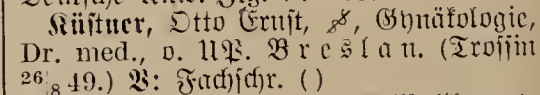 Küstner, Otto Ernst, Gynäkologie,
Dr. med., o. UP. Breslau. (Trossin
26/8 49.) V: Fachschr. ()